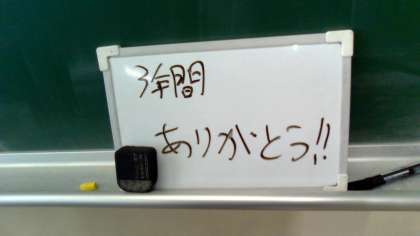 3年間
ありがとう!!